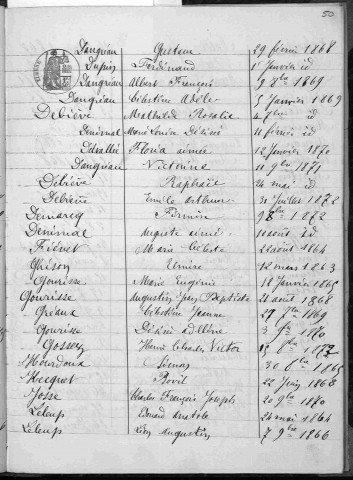 50
Dangréau Gustave 29 février 1868
Dupin Ferdinand 1 Janvier id
Dangréau Albert François 9 8bre 1869
Dangréau Célestine Adèle 5 Janvier 1869
Debiève Mathilde Rosalie 4 7bre id
Denimal Maria Louisa Désirée 11 février id
Delvallée Floria aimée 12 Janvier 1870
Dangréau Victorine 11 9bre 1871
Débiève Raphaël 24 mai id
Debiève Emile arthur 31 Juillet 1872
Demarcq Firmin 9 8bre 1872
Denimal Auguste aimé 10 août id
Fiévet Marie Céleste 22 août 1864
Ghison Elmire 12 mars 1863
Gourisse Marie Eugénie 18 Janvier 1865
Gourisse Augustin Jean Baptiste 21 août 1868
Gréaux Célestine Jeanne 27 7bre 1869
Gourisse Désiré 3 1870
Gossez Henri Victor 15 1872
Hourdoux 30 8bre 1865
Hecquet 22 Juin 1868
Josse Charles François Joseph 20 9bre 1870
Leleup Edouard anatole 24 mai 1864
Leleup Léon Augustin 7 9bre 1866